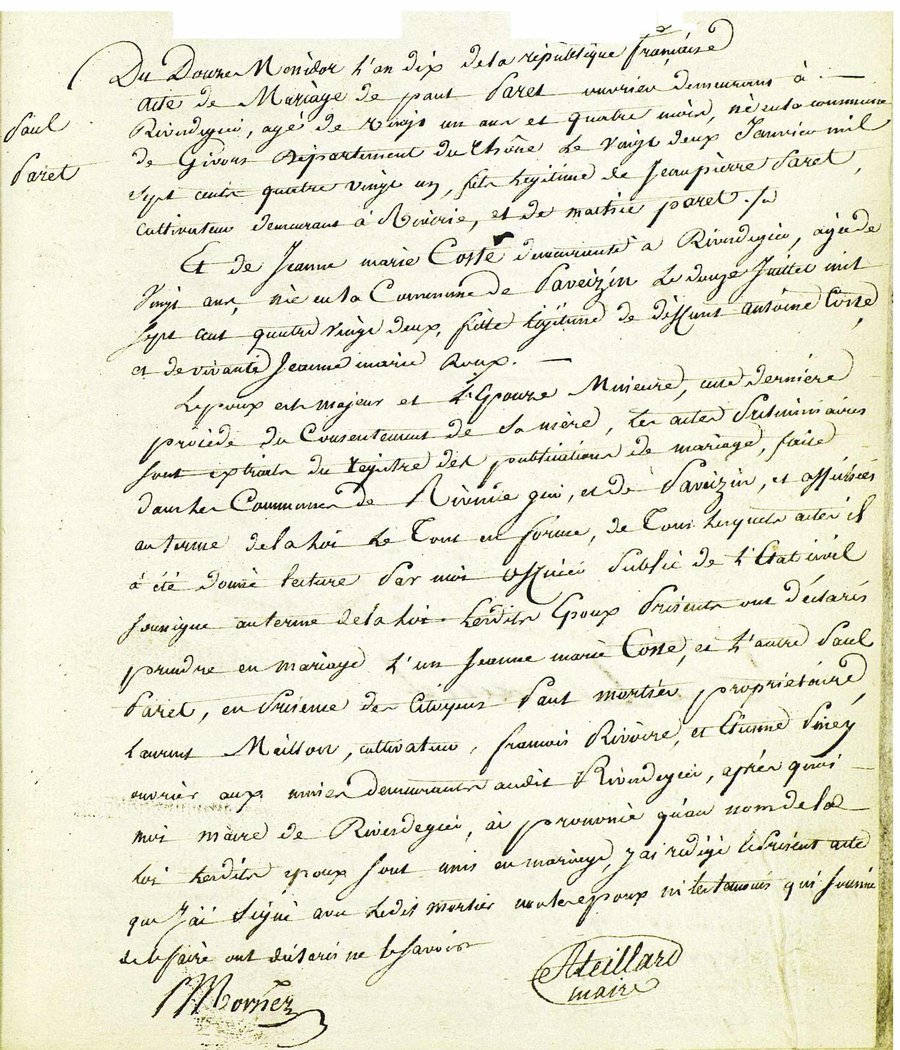 Du Douze Mesidor l'an dix de la république française
Paul
Paret
acte de Mariage de paul Paret ouvrier demeurant à
Rivedegier, agé de vingt un ans et quatre mois, né en la commune
de Givors Département du Rhône le vingt deux Janvier mil
sept cents quatre vingt un, fils legitime de Jeanpierre Paret,
cultivateur demeurant à Riverie, et de paret
Et de Jeanne marie Coste demeurante a Rivedegier, agée de
vingt ans, née en la Commune de Paveizin le douze Juillet mil
sept cent quatre vingt deux, fille legitime de deffunt antoine Coste
et de vivante Jeanne marie Roux.
Lepoux est majeur et L'Epouze Mineure, cete derniére
procède du Consentement de sa mère, les actes Preliminaires
sont extraits du registre des publications de mariage, faite
dans les Communes de Rivedegier, et de Paveizin, et affichés
au terme de la loi le Tout en forme, de Tous lesquels actes il
à été donné lecture Par moi officier Public de l'Etat civil
soussigné au terme de la loi. Lesdits Epoux Présents ont déclarés
prendre en mariage l'un Jeanne marie Coste, et l'autre Paul
Paret, en Présence des Citoyens Paul mortier propriétaire
Laurent Meillon, cultivateur, francois Rivoire, et Etienne Piney
ouvrier aux mines demeurants audit Rivedegier, après quoi
moi maire de Rivedegier, ai prononcé qu'au nom de la
loi lesdits epoux sont unis en mariage, j'ai redigé le Présent acte
que J'ai Signé avec ledit mortier non les epoux ni les temoins qui
de le faire ont déclarés ne le savoir
Mortier
Ateillard
maire